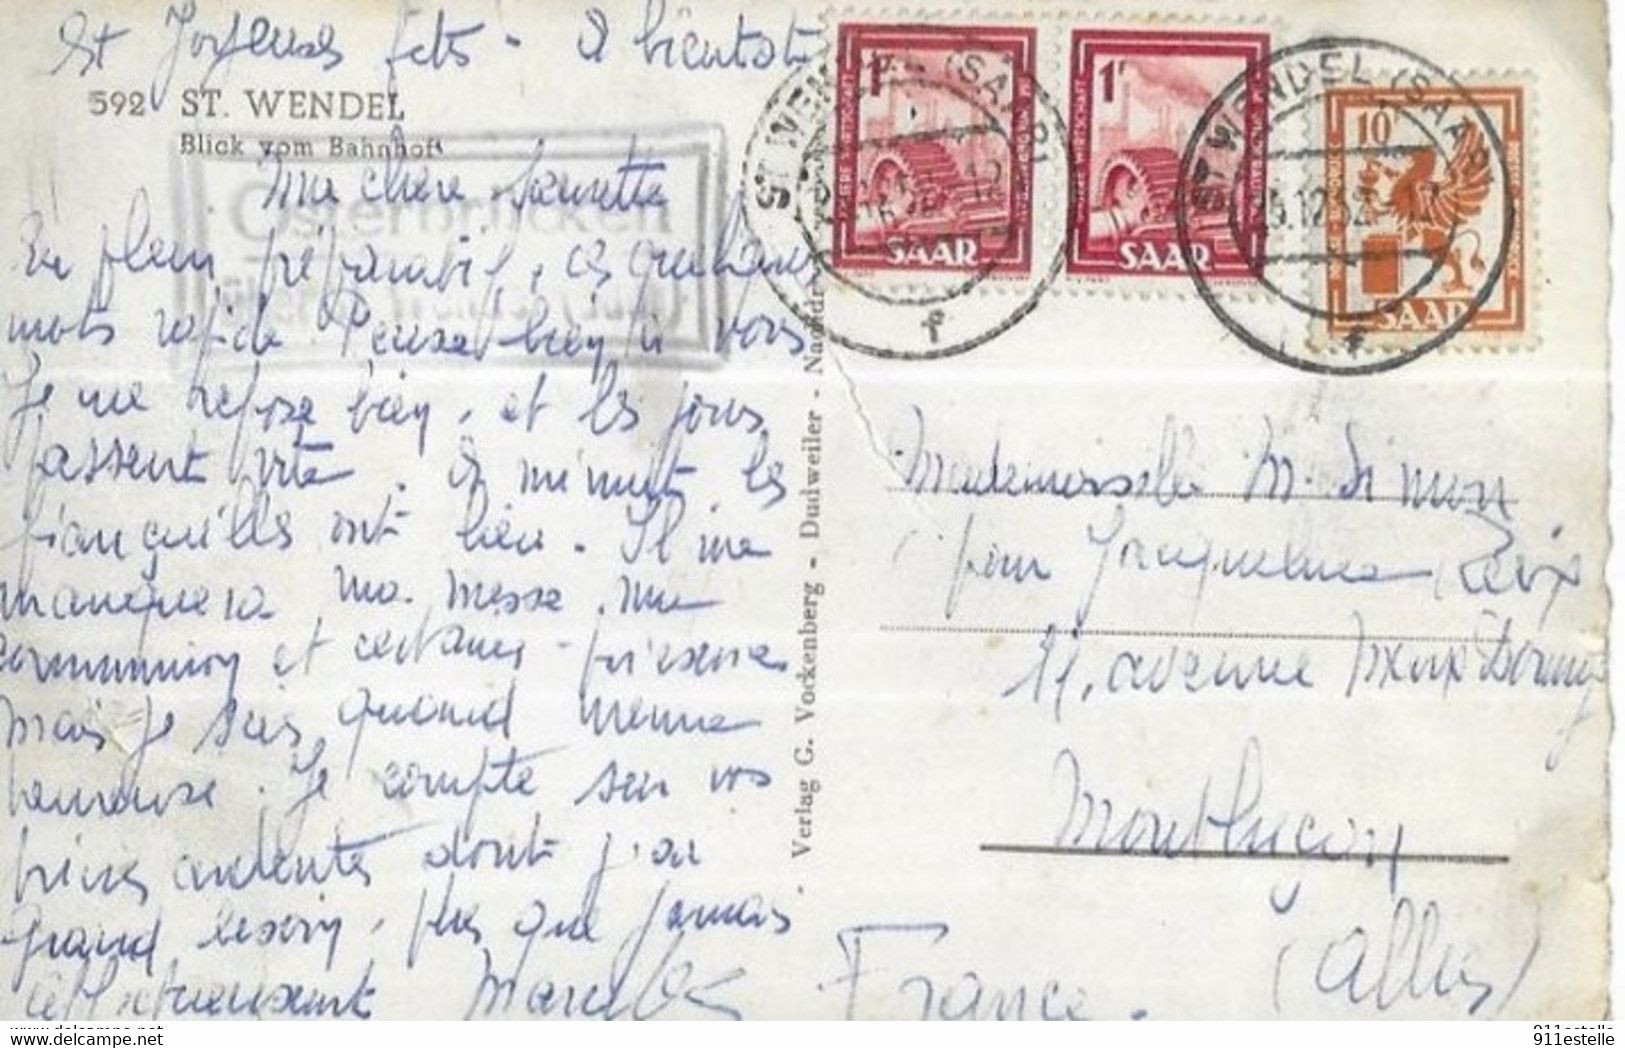 Et Joyeuses fêts - à bientôt
592 ST. WENDEL
Blick vom Bahnhof
Ma chère
Osterbrücken
En plein préparatif, ces quelques
mots rapide Pense bien à vous
Je me repose bien, et les jours
passent vite. à minuit les
ont lieu. Il me
manquera ma messe, ma
communion et certaines
mais je suis quand même
heureuse. Je compte sur vos
prières ardentes dont j'ai
grand besoin, plus que jamais
affectueusement
Verlag G. Vockenberg - Dudweiler -
1F
SAAR
1F
SAAR
10F
SAAR
ST. WENDEL (SAAR)
f
ST. WENDEL (SAAR)
Mademoiselle M. Simon
pour Jacqueline
11, avenue Marx Dormoy
Montluçon
(Allier)
France.
www.delcampe.net
911estelle